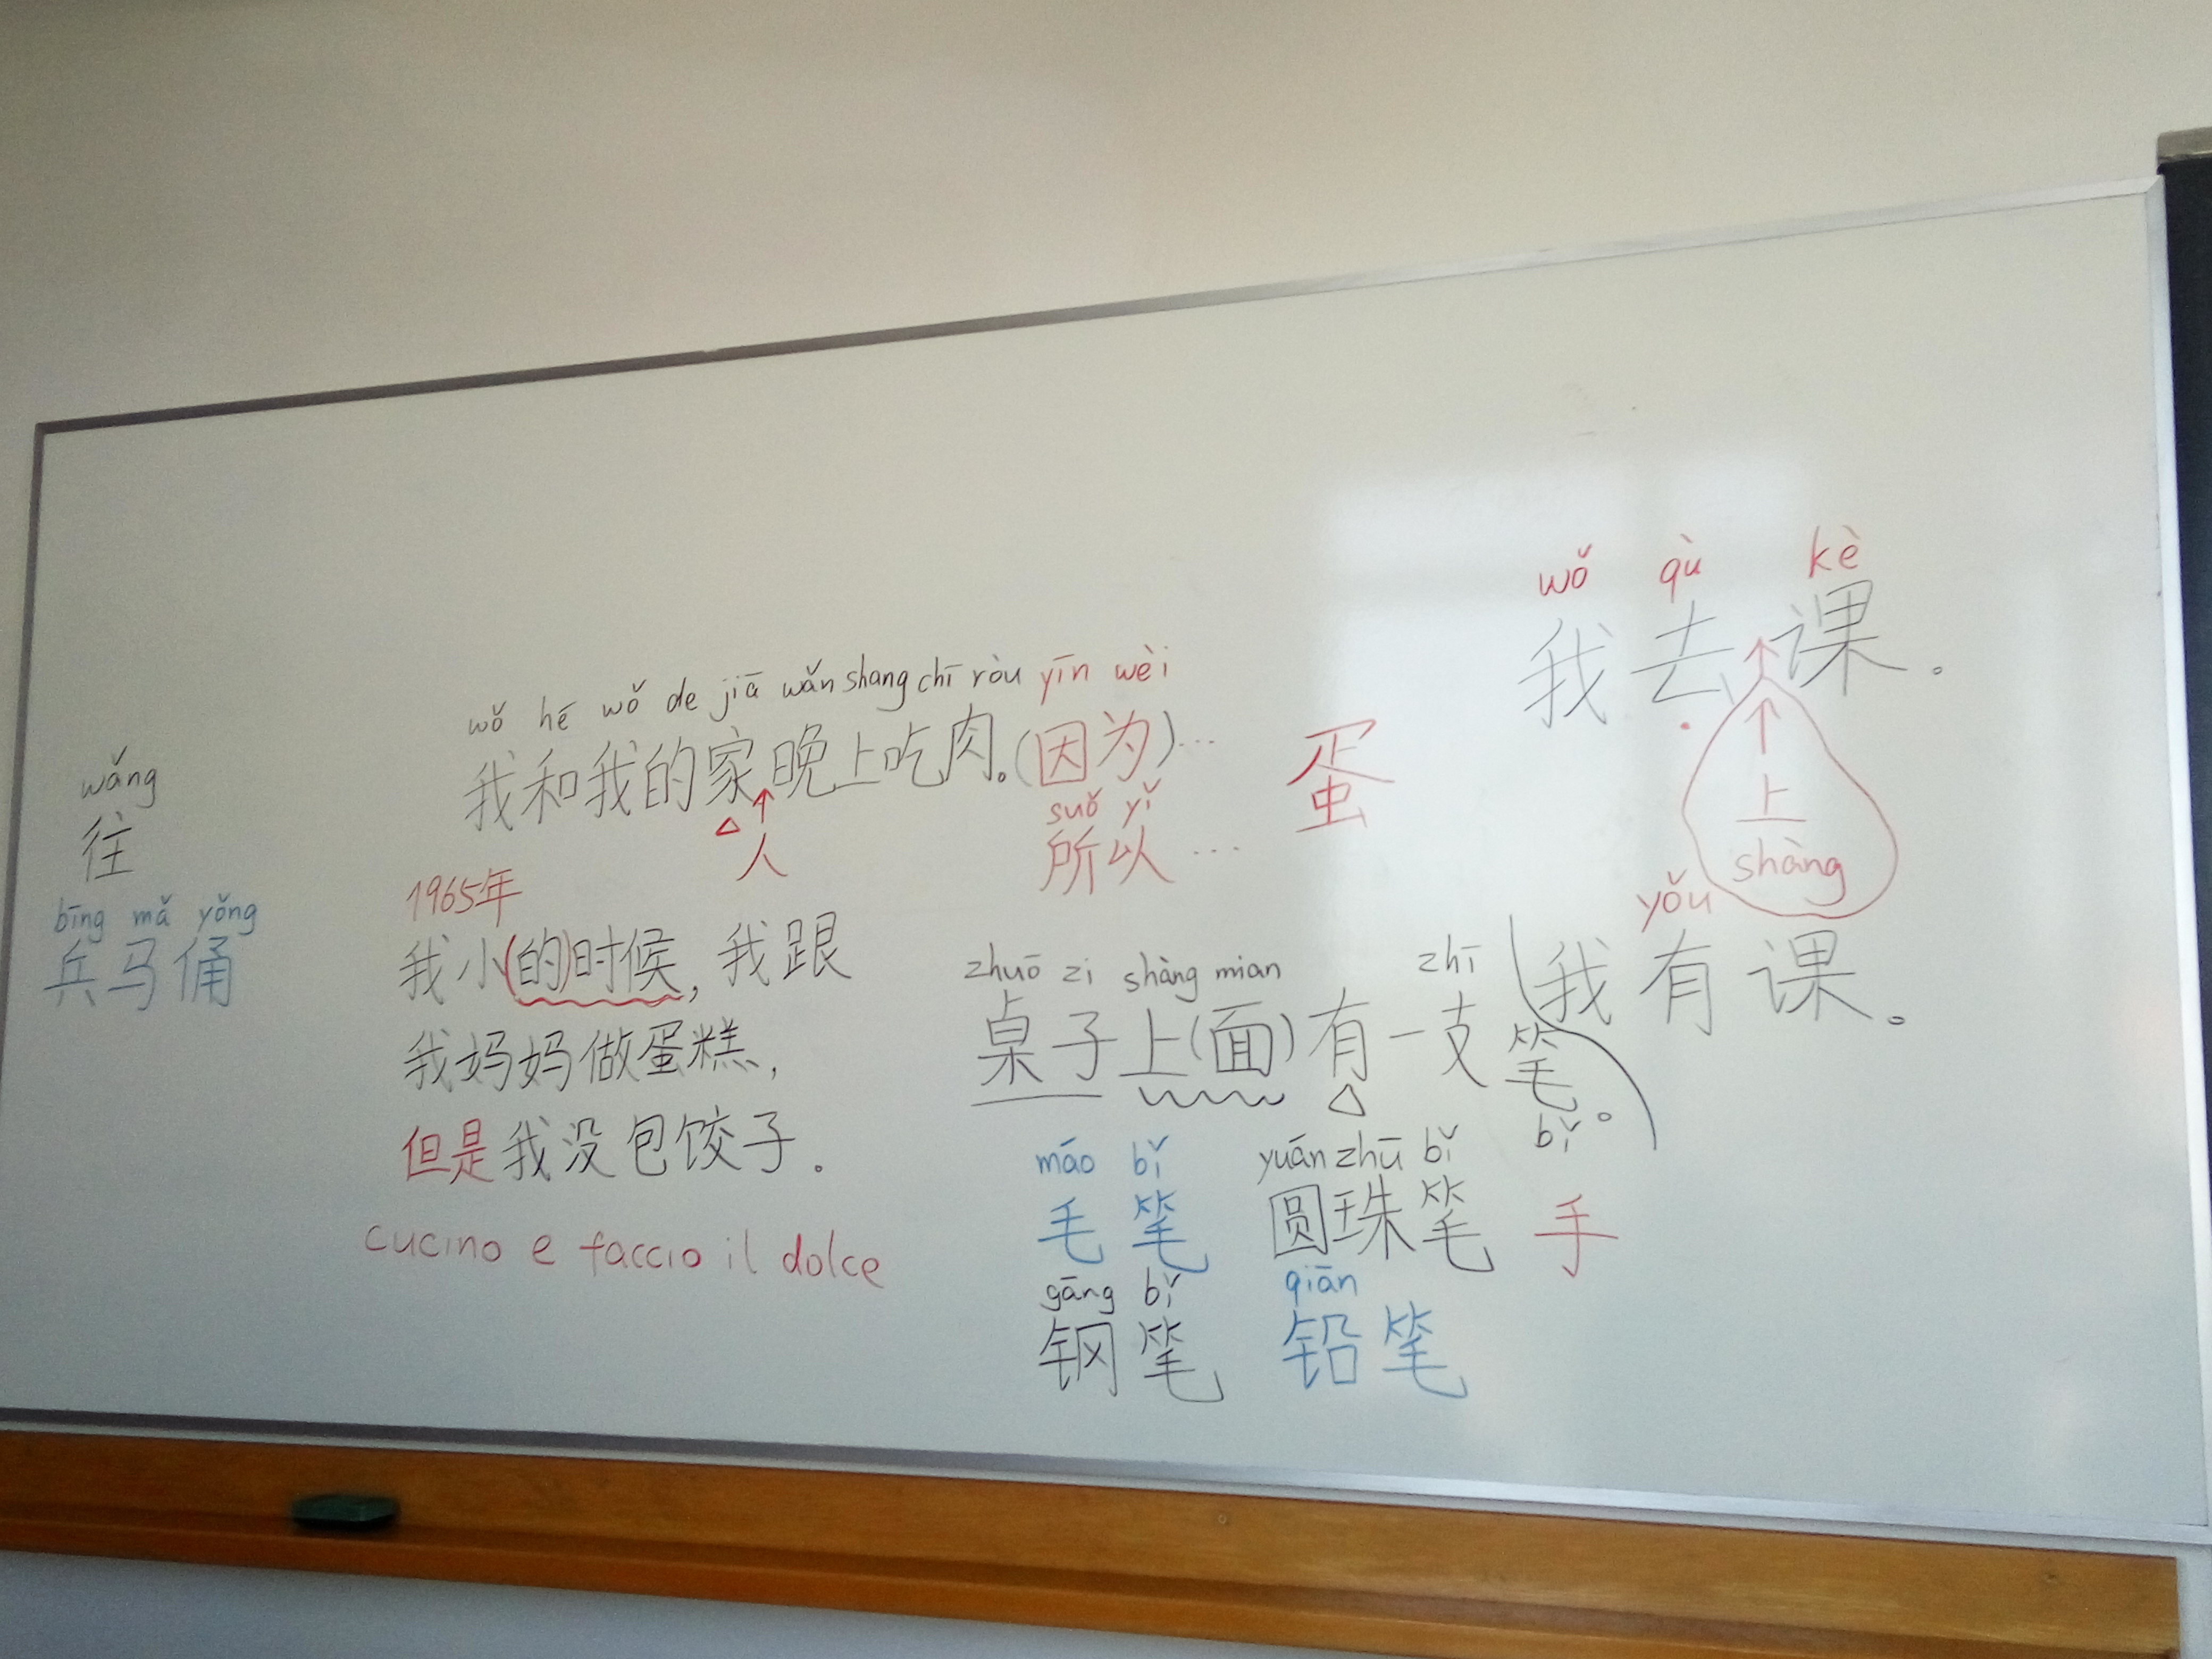 wǎng
往
bīng mǎ yǒng
兵马俑
wǒ hé wǒ de jiā wǎn shang chī ròu yīn wèi
我和我的家晚上吃肉。(因为)...
人
suǒ yǐ
所以...
蛋
1965年
我小(的)时候,我跟
我妈妈做蛋糕,
但是我没包饺子.
cucino e faccio il dolce
wǒ qù kè
我去课。
上
shàng
yǒu
我有课。
zhuō zi shàng mian zhī
桌子上(面)有一支笔。
bǐ
máo bǐ yuán zhū bǐ
毛笔 圆珠笔 手
gāng bǐ qiān
钢笔 铅笔